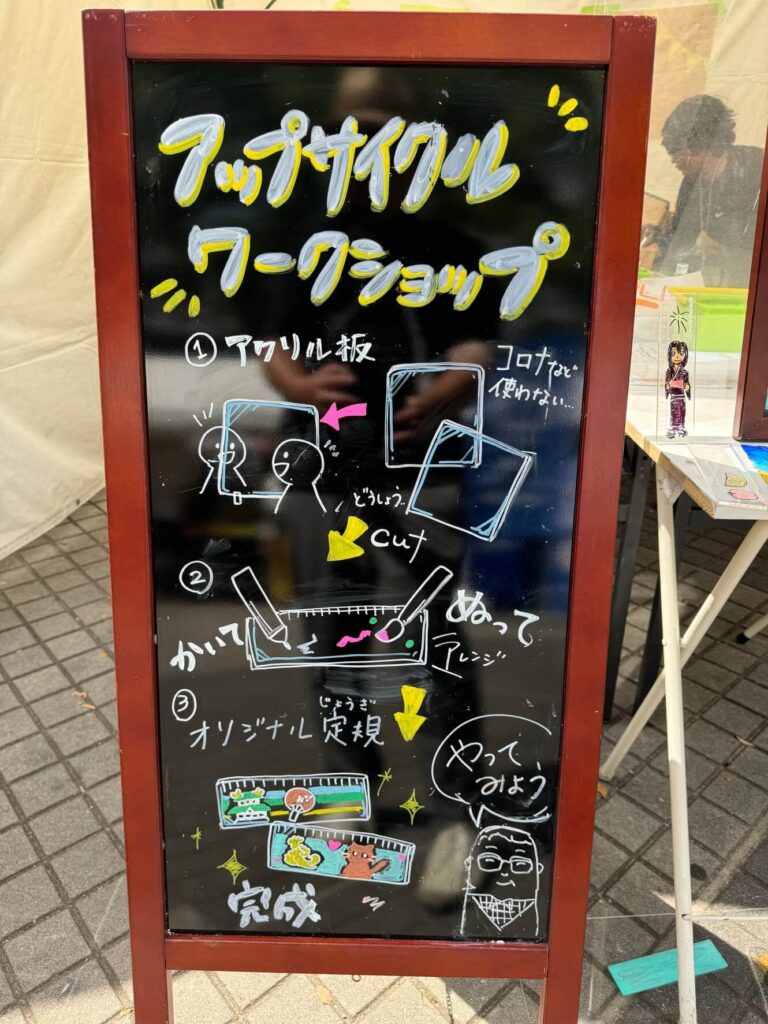 アップサイクル
ワークショップ
① アクリル板
コロナなど
使わない…
どうしよう..
cut
②
かいて
ぬって
アレンジ
③
じょうぎ
オリジナル定規
やって
みよう
完成